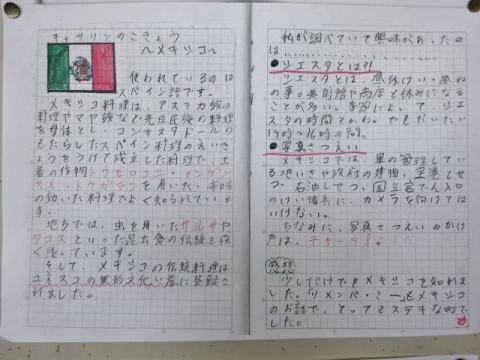 キャサリンのこきょう
〜メキシコ〜
使われているのは
スペイン語です。
メキシコ料理は、アステカ族の
料理やマヤ族など先住民族の料理
を母体とし、コンキスタドールの
もたらしたスペイン料理のえいき
ょうをうけて成立した料理で、土
着の作物トウモロコシ・インゲン
マメ・トウガラシを用いた、辛味
の効いた料理でよく知られていま
す。
地方では、虫を用いたサルサや
タコスといった昆虫食の伝統も強く
残っています。
そして、メキシコの伝統料理は
ユネスコの無形文化い産に登録さ
れました。
私が調べていて興味があったの
は
●シエスタとは?!
シエスタとは、昼休けい・昼ね
の事。美術館や商店も休みになる
ことが多い。季節によって、シエ
スタの時間もかわる。でもだいたい
14時〜16時の間。
●写真さつえい
メキシコでは、軍の管理してい
る地いきや政府の建物、空港しせ
つ、石油しせつ、国立宮でん入口
のけい備兵に、カメラを向けては
いけない。
ちなみに、写真さつえいのかけ
声は、
感想
少しだけでもメキシコを知れま
した。「リメンバー・ミー」もメキシコ
のお話で、とってもステキな町で
した。